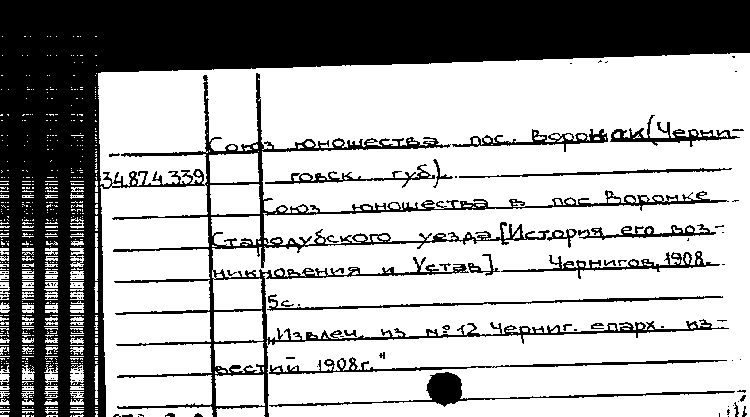 Союз юношества пос. Воронок (Черни-
34.87.4.339 говск. губ.)
Союз юношества в пос Воронке
Стародубского уезда [История его воз-
никновения и Устав]. Чернигов, 1908.
5с.
„Извлеч. из №12 Черниг. епарх. из-
вестий 1908г."